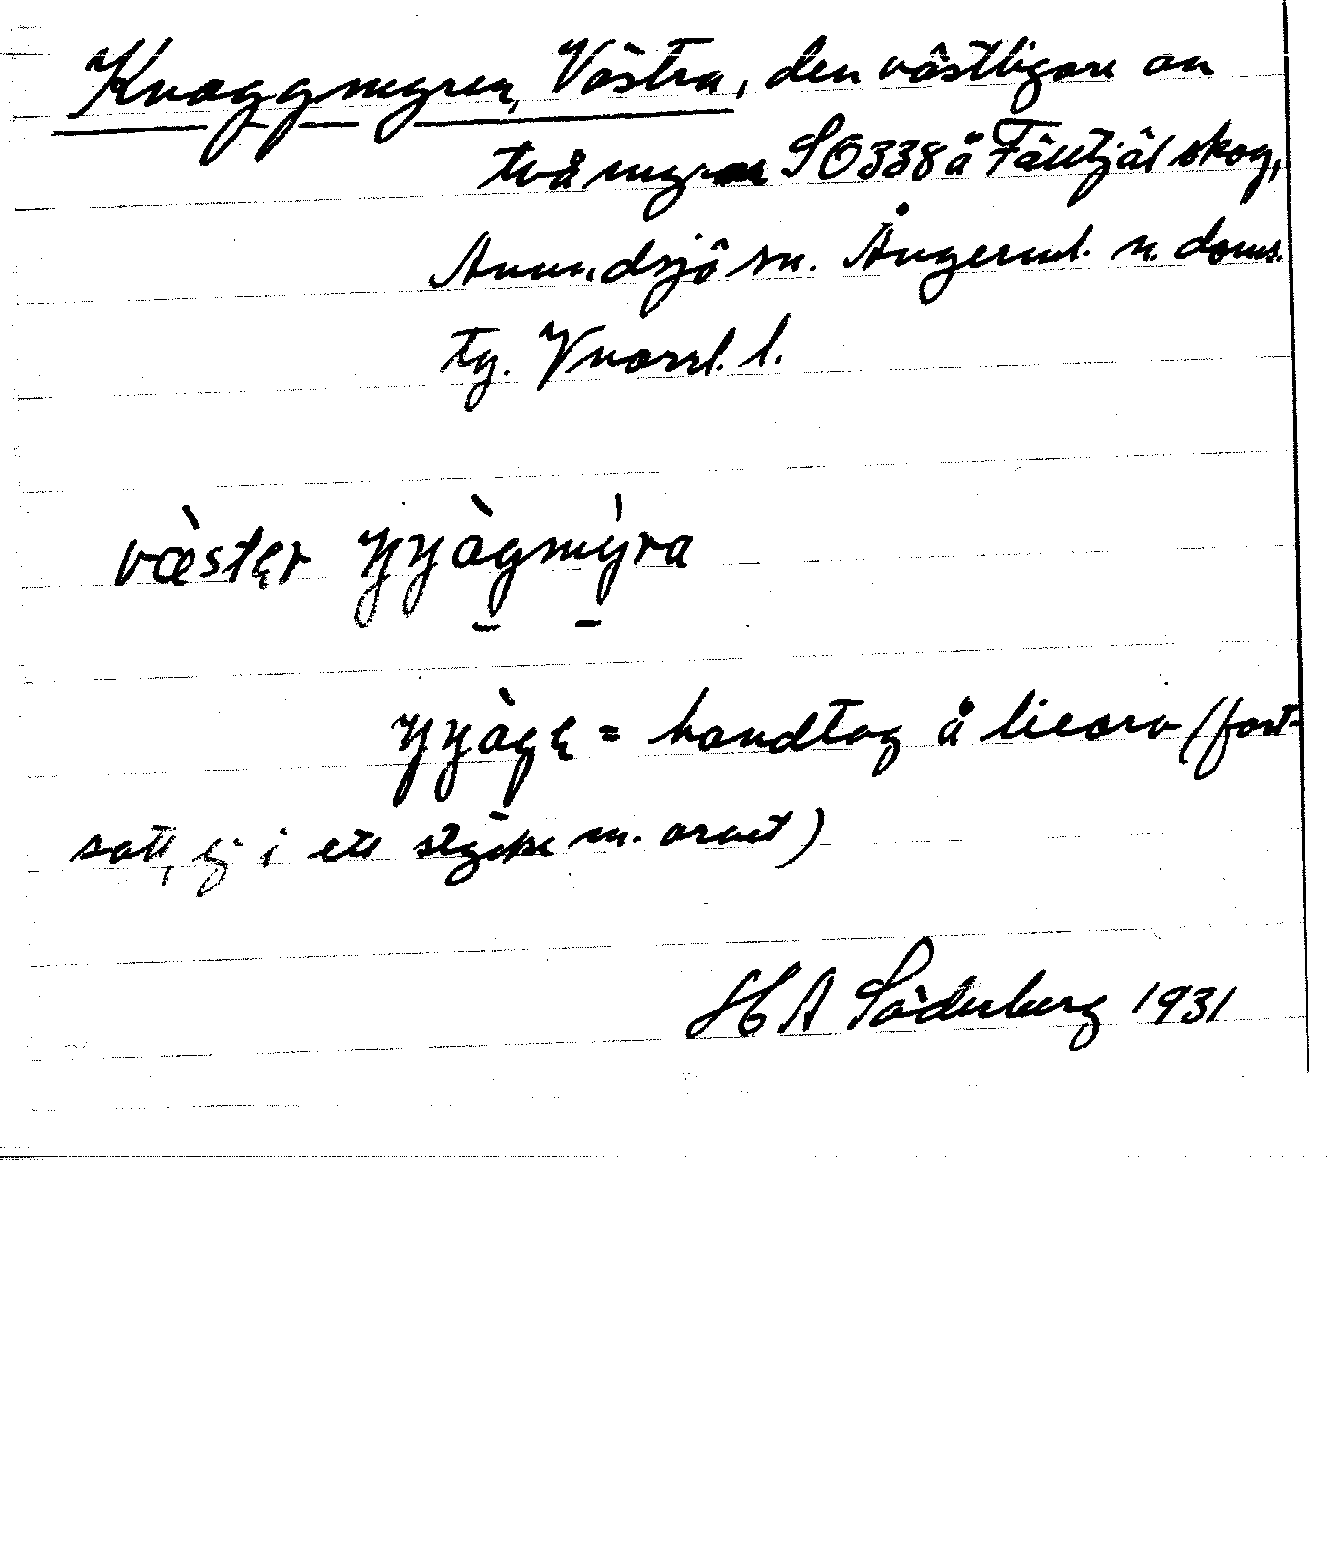 Knaggmyren, Västra, den västligare av
två myrar SO 338 å Fälltjäl skog,
Anundsjö sn. Ångerml. n. doms.
tg. Vnorrl. l.
væster
handtag å lieorv (fast-
satt, ej i ett stycke m. orvet)
H A Söderberg 1931